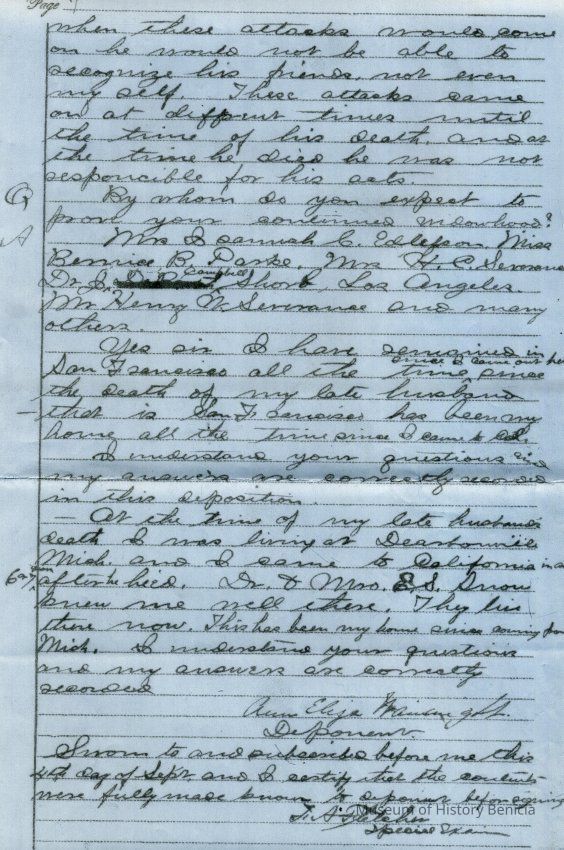 Page
when these attacks would come
on he would not be able to
recognize his friends, not even
my self. These attacks came
on at different times until
the time of his death, and at
the time he died he was not
responcible for his acts.
Q By whom do you expect to
prove your continued widowhood?
A Mrs Hannah C. Edlefson, Miss
Bernice B. Parke, Mrs H. C. Severance
Dr J. Campbell Shorb, Los Angeles.
Mr. Henry W. Severance and many
others.
Yes sir I have remained in
San Francisco all the time since I came out here since
the death of my late husband
that is San Francisco has been my
home all the time since I came to Cal.
I understand your questions and
my answers are correctly recorded
in this deposition.
At the time of my late husbands
death I was living at Dearbornville
Mich. and I came to California in a
6 or 7 after he died. Dr. & Mrs. E. S. Snow
knew me well there. They live
there now. This has been my home since coming from
Mich. I understand your questions
and my answers are correctly
recorded
Ann Eliza
Deponent
Sworn to and subscribed before me this
4th day of Sept. and I certify that the contents
were fully made known to deponent before signing
Special Exam
Museum of History Benicia